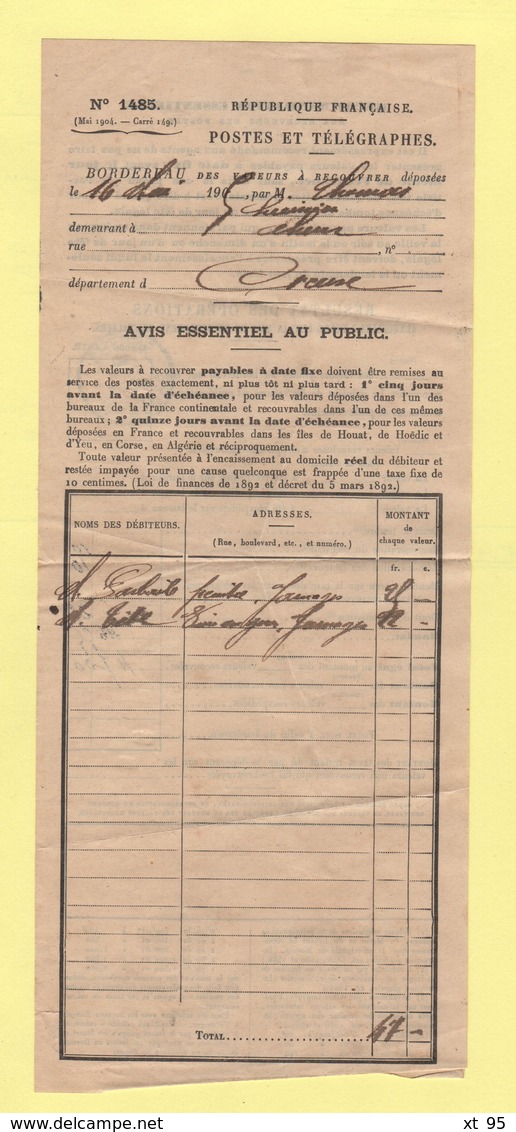 N° 1485.
(Mai 1904. — Carré 149.)
RÉPUBLIQUE FRANÇAISE.
POSTES ET TÉLÉGRAPHES.
BORDEREAU DES VALEURS À RECOUVRER déposées
le 16 Mai 1905, par M.
demeurant à
rue , n° .
département d Creuse
AVIS ESSENTIEL AU PUBLIC.
Les valeurs à recouvrer payables à date fixe doivent être remises au
service des postes exactement, ni plus tôt ni plus tard : 1° cinq jours
avant la date d'échéance, pour les valeurs déposées dans l'un des
bureaux de la France continentale et recouvrables dans l'un de ces mêmes
bureaux ; 2° quinze jours avant la date d'échéance, pour les valeurs
déposées en France et recouvrables dans les îles de Houat, de Hoëdic et
d'Yeu, en Corse, en Algérie et réciproquement.
Toute valeur présentée à l'encaissement au domicile réel du débiteur et
restée impayée pour une cause quelconque est frappée d'une taxe fixe de
10 centimes. (Loi de finances de 1892 et décret du 5 mars 1892.)
NOMS DES DÉBITEURS.
ADRESSES.
(Rue, boulevard, etc., et numéro.)
MONTANT
de
chaque valeur.
fr. c.
TOTAL 47 —
xt 95